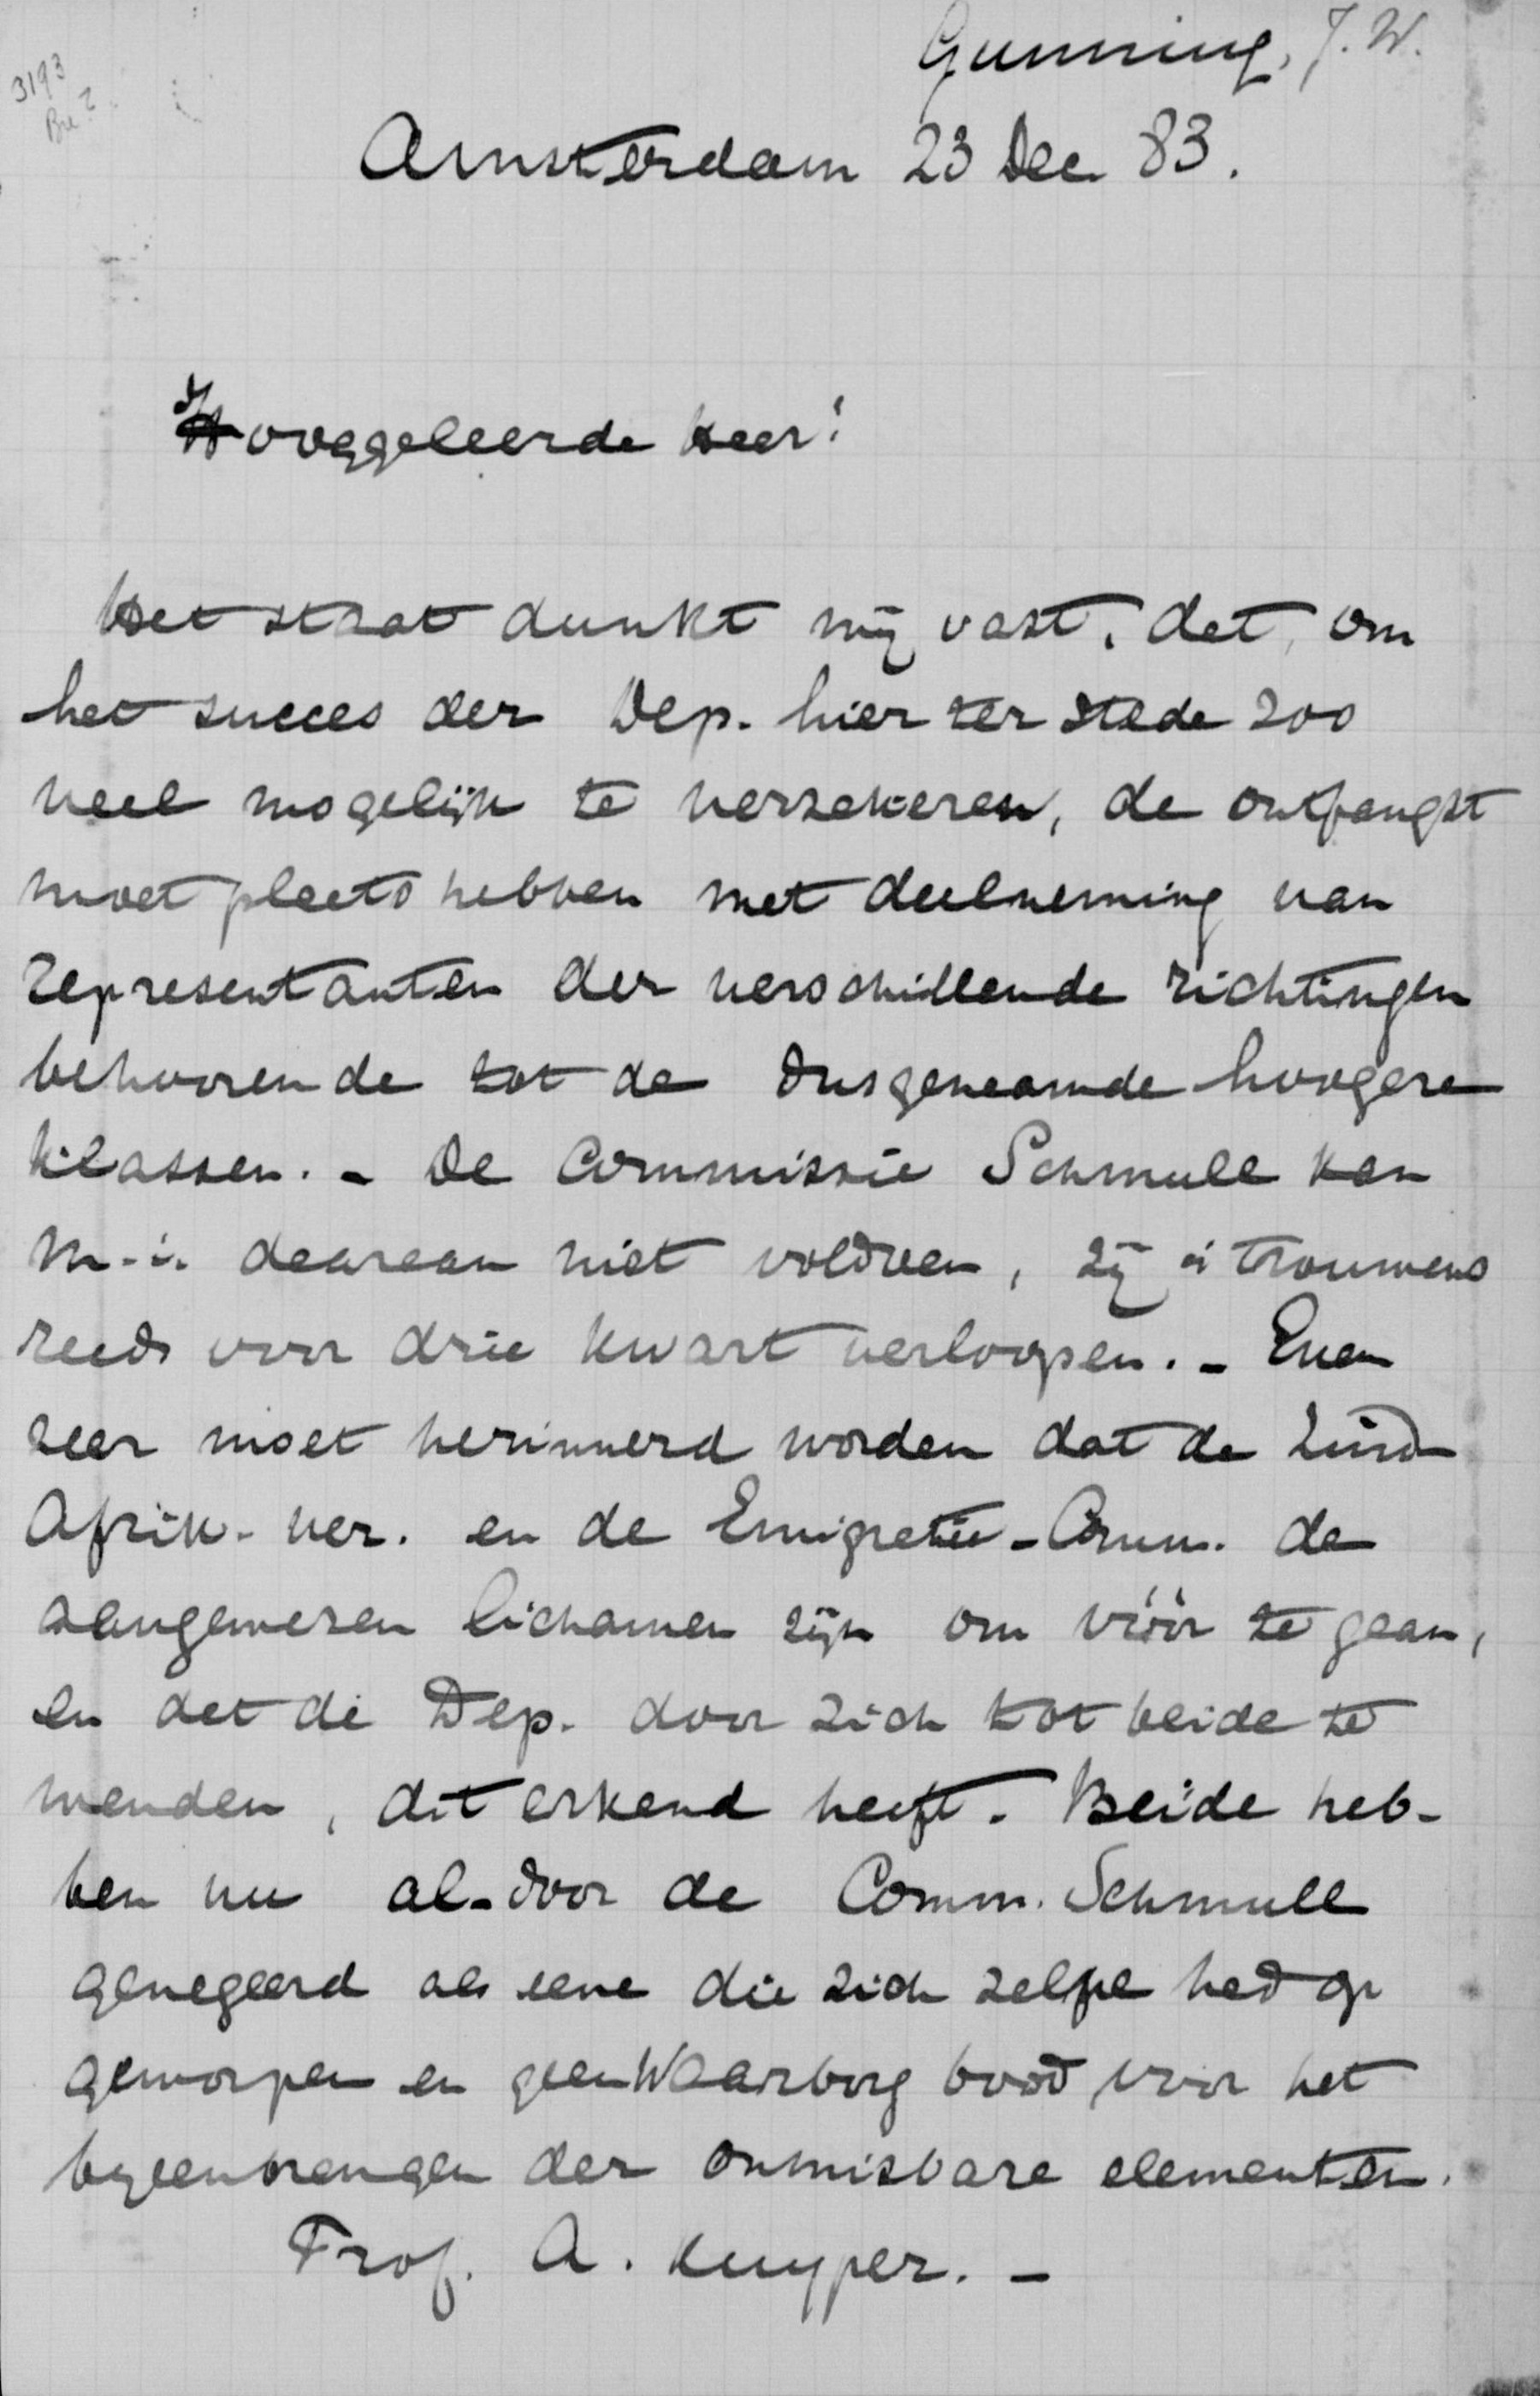 Gunning, J. W.
3193
Bre 2
Amsterdam 23 Dec 83.
Hooggeleerde Heer!
Het staat dunkt mij vast, dat, om
het succes der Dep. hier ter stede zoo
veel mogelijk te verzekeren, de ontfangst
moet plaats hebben met deelneming van
representanten der verschillende richtingen
behoorende tot de dusgenaamde hoogere
klassen. - De Commissie Schmull kan
m.i. daaraan niet voldoen, zij is trouwens
reeds voor drie kwart verloopen. - Even
zeer moet herinnerd worden dat de Zuid
Afrik. Ver. en de Emigratie-Comm. de
aangewezen lichamen zijn om vóór te gaan,
en dat de Dep. door zich tot beide te
wenden, dit erkend heeft. Beide heb-
ben nu al-door de Comm. Schmull
genegeerd als eene die zich zelve had op
geworpen en geen Waarborg bood voor het
byeenbrengen der onmisbare elementen.
Prof. A. Kuyper. -